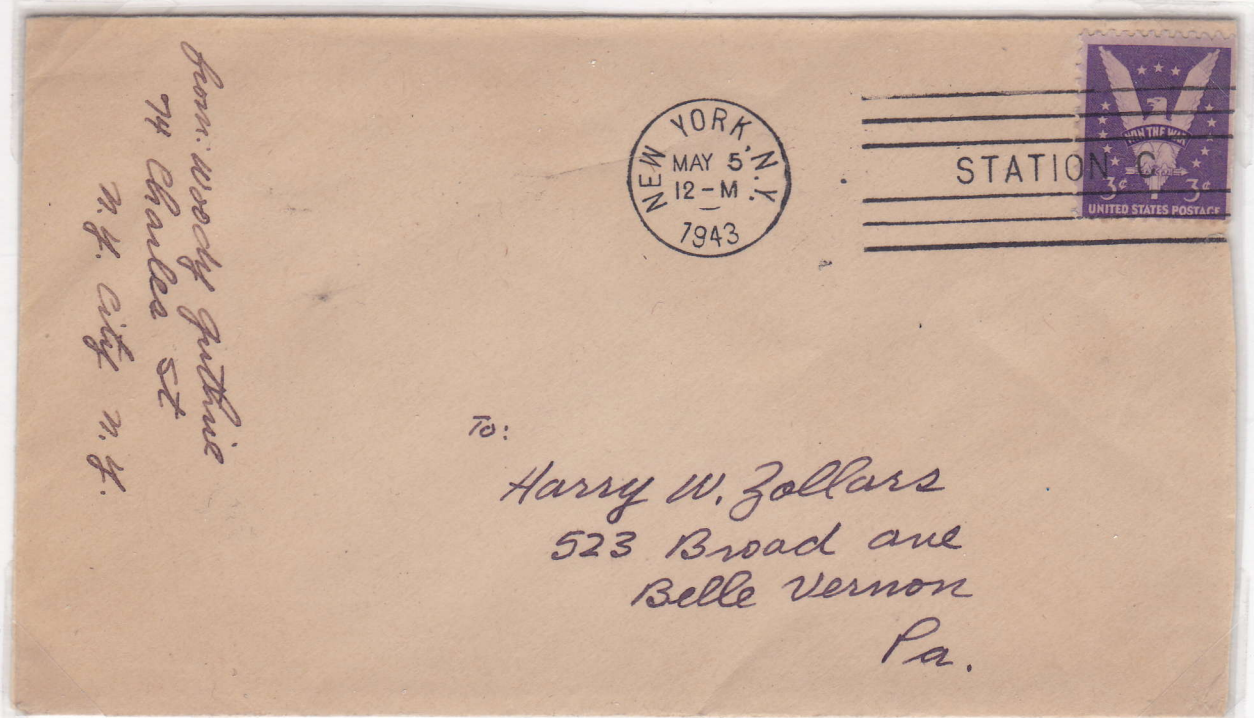 from: Woody Guthrie
74 Charles St
N.Y. City N.Y.
NEW YORK, N.Y.
MAY 5
12-M
1943
STATION C
WIN THE WAR
3¢ 3¢
UNITED STATES POSTAGE
To:
Harry W. Zollars
523 Broad Ave
Belle Vernon
Pa.